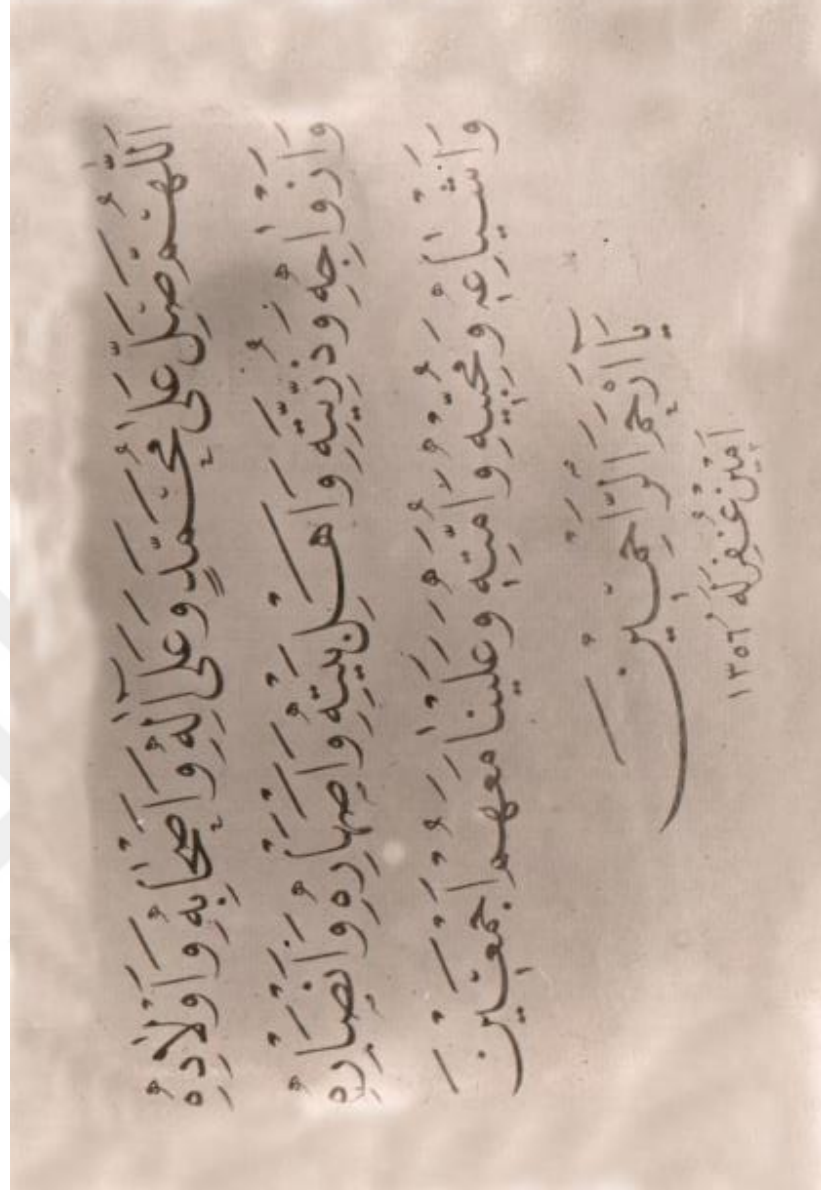 اَللّٰهُمَّ صَلِّ عَلٰى مُحَمَّدٍ وَعَلٰى اٰلِهِ وَاَصْحَابِهِ وَاَوْلَادِهِ
وَاَزْوَاجِهِ وَذُرِّيَّتِهِ وَاَهْلِ بَيْتِهِ وَاَصْهَارِهِ وَاَنْصَارِهِ
وَاَشْيَاعِهِ وَمُحِبِّيهِ وَاُمَّتِهِ وَعَلَيْنَا مَعَهُمْ اَجْمَعِينَ
يَا اَرْحَمَ الرَّاحِمِينَ
اَمِينْ غُفِرَ لَهُ ١٣٥٦